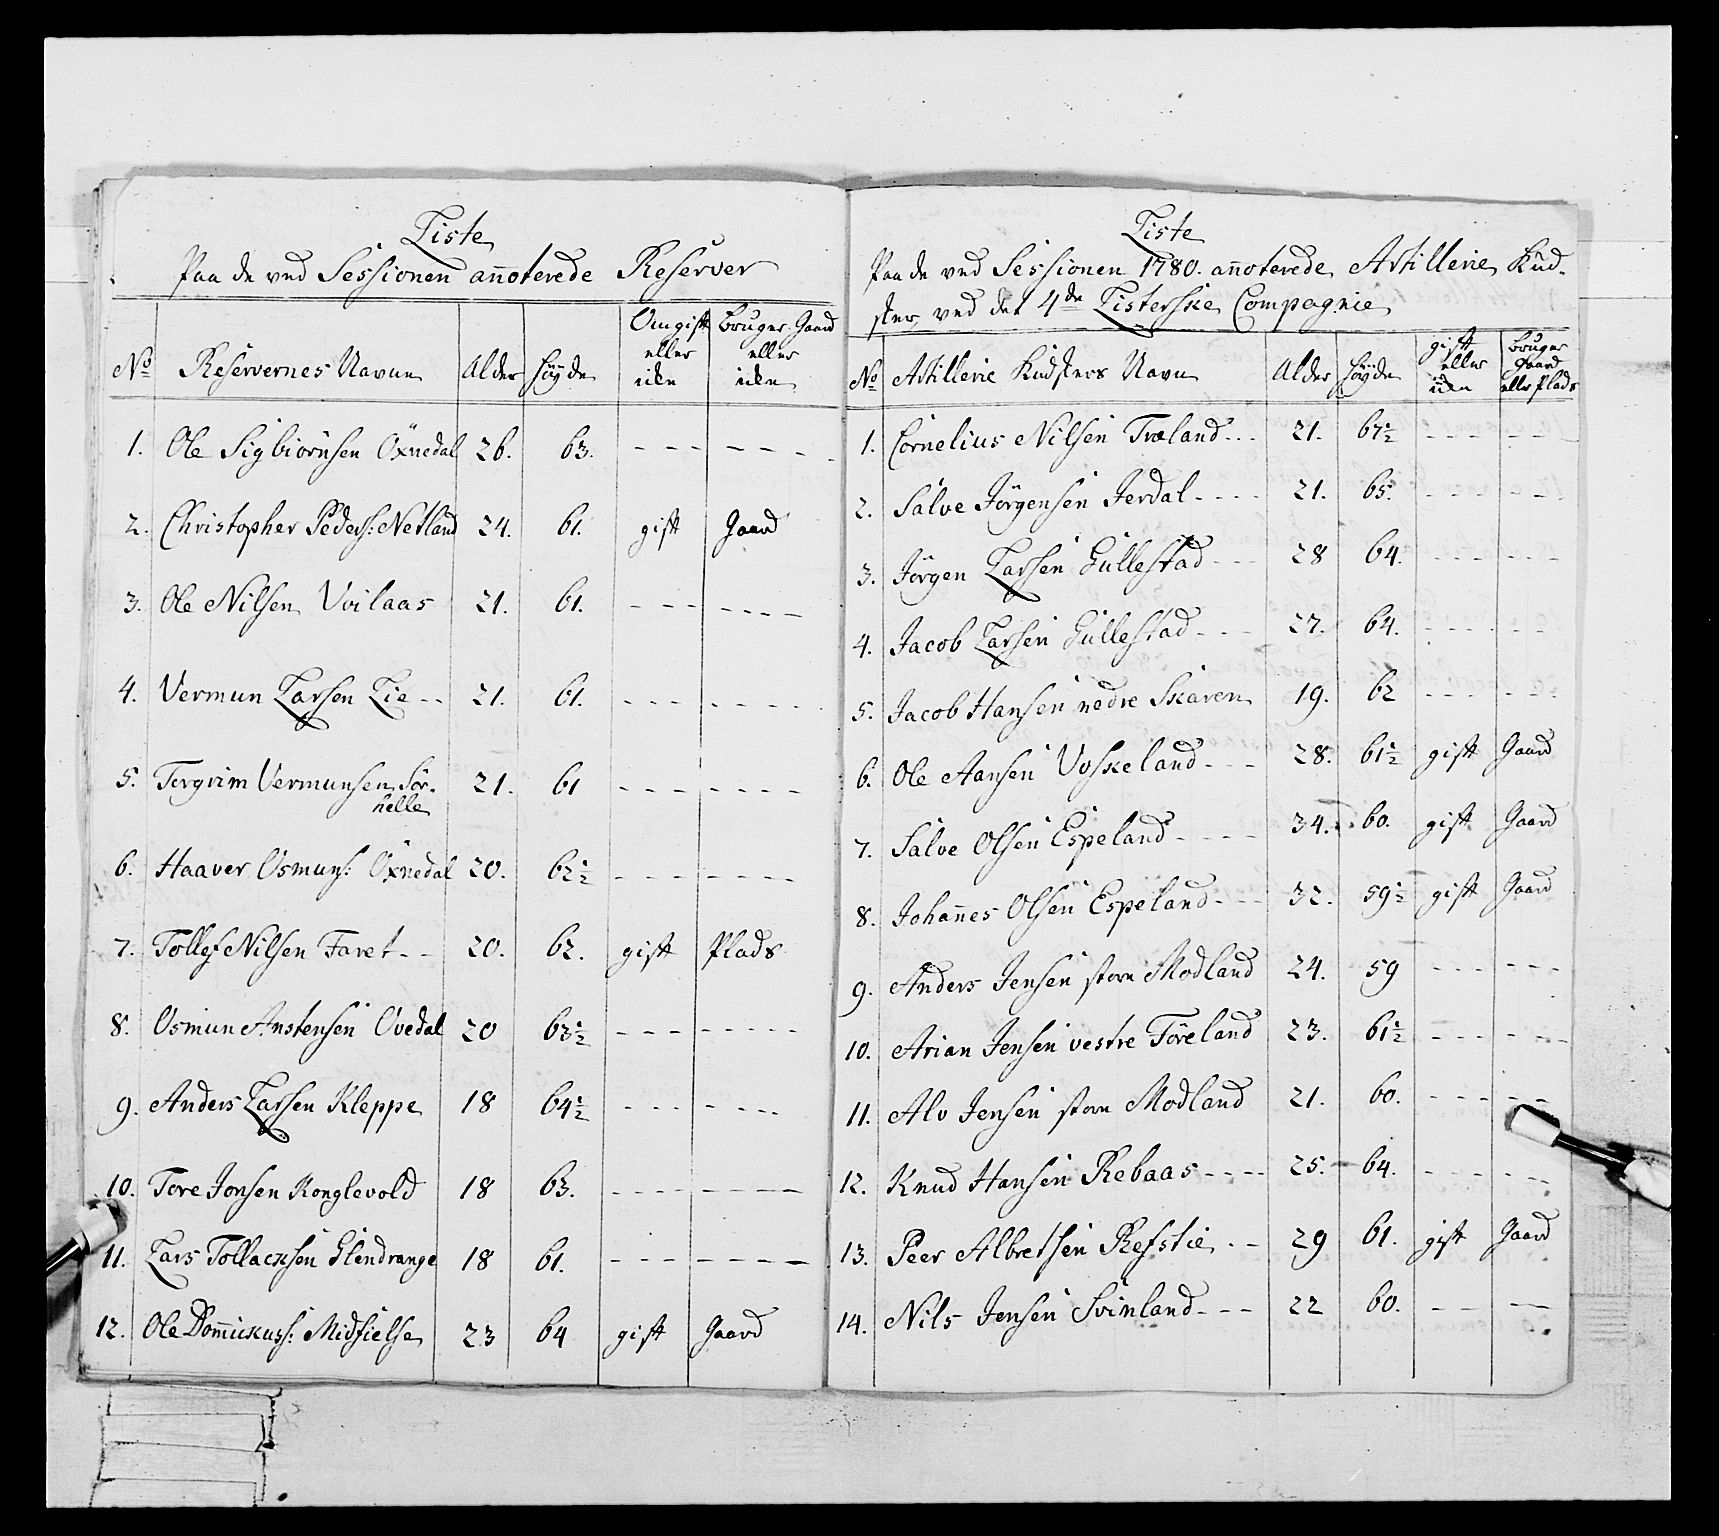 Liste
Paa de ved Sessionen añoterede Reserver
No Reservernes Navne Alder Høyde Om gift eller ikke bruger Gaard eller ikke
1. Ole Sigbiörnsen Öxnedal 26. 63. - - - - - - -
2. Christopher Peders: Netland 24. 61. gift Gaard
3. Ole Nilsen Uvilaas 21. 61. - - - - - - -
4. Vermun Larsen Lie - - 21. 61. - - - - - - - -
5. Torgrim Vermunsen Sör-
helle 21. 61 - - - - - - - -
6. Haaver Osmuns: Öxnedal 20. 62½ - - - - - - - -
7. Tollef Nilsen Faret - - 20. 62. gift Plads
8. Osmun Anstensen Ovedal 20 63½ - - - - - - - -
9. Anders Larsen Kleppe 18 64½ - - - - - - -
10. Tore Jonsen Konglevold 18 63. - - - - - - - -
11. Lars Tollacksen Glendrange 18 61. - - - - - - - -
12. Ole Dom̄icuss: Midfielse 23 64 gift Gaard
Liste
Paa de ved Sessionen 1780. añoterede Artillerie Kud-
sker ved det 4de Listerske Compagnie
No Artillerie Kudskers Navn Alder Høyde gift eller ikke bruger Gaard eller Plads
1. Cornelius Nilsen Træland - - - 21. 67½ - - - - - -
2. Salve Jörgensen Jerdal - - - - 21. 65. - - - - - - -
3. Jörgen Larsen Gullestad - - - 28 64. - - - - - - -
4. Jacob Larsen Gullestad - - - 27. 64. - - - - - - -
5. Jacob Hansen nedre Skaren 19. 62 - - - - - -
6. Ole Aansen Voskeland - - - 28. 61½ gift Gaard
7. Salve Olsen Espeland - - - - 34. 60. gift Gaard
8. Johañes Olsen Espeland - - - 32. 59½ gift Gaard
9. Anders Jensen store Modland 24. 59 - - - - - - -
10. Arian Jensen vestre Föreland 23. 61½ - - - - - - -
11. Alv Jensen store Modland 21. 60. - - - - - -
12. Knud Hansen Rebaas - - - - 25. 64. - - - - - -
13. Peer Albretsen Refstie - - 29 61. gift Gaard
14. Nils Jensen Svinland - - - 22 60. - - - -